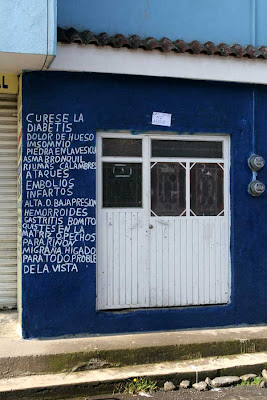 CURESE LA
DIABETIS
DOLOR DE HUESO
INSOMNIO
PIEDRA EN LA VESICU
ASMA BRONQUIL
RIUMAS CALAMBRES
ATAQUES
EMBOLIOS
INFARTOS
ALTA.O.BAJA PRESION
HEMORROIDES
GASTRITIS BOMITO
QUISTES EN LA
MATRIZ O PECHOS
PARA RIÑON
MIGRAÑA HIGADO
PARA TODO PROBLE
DE LA VISTA